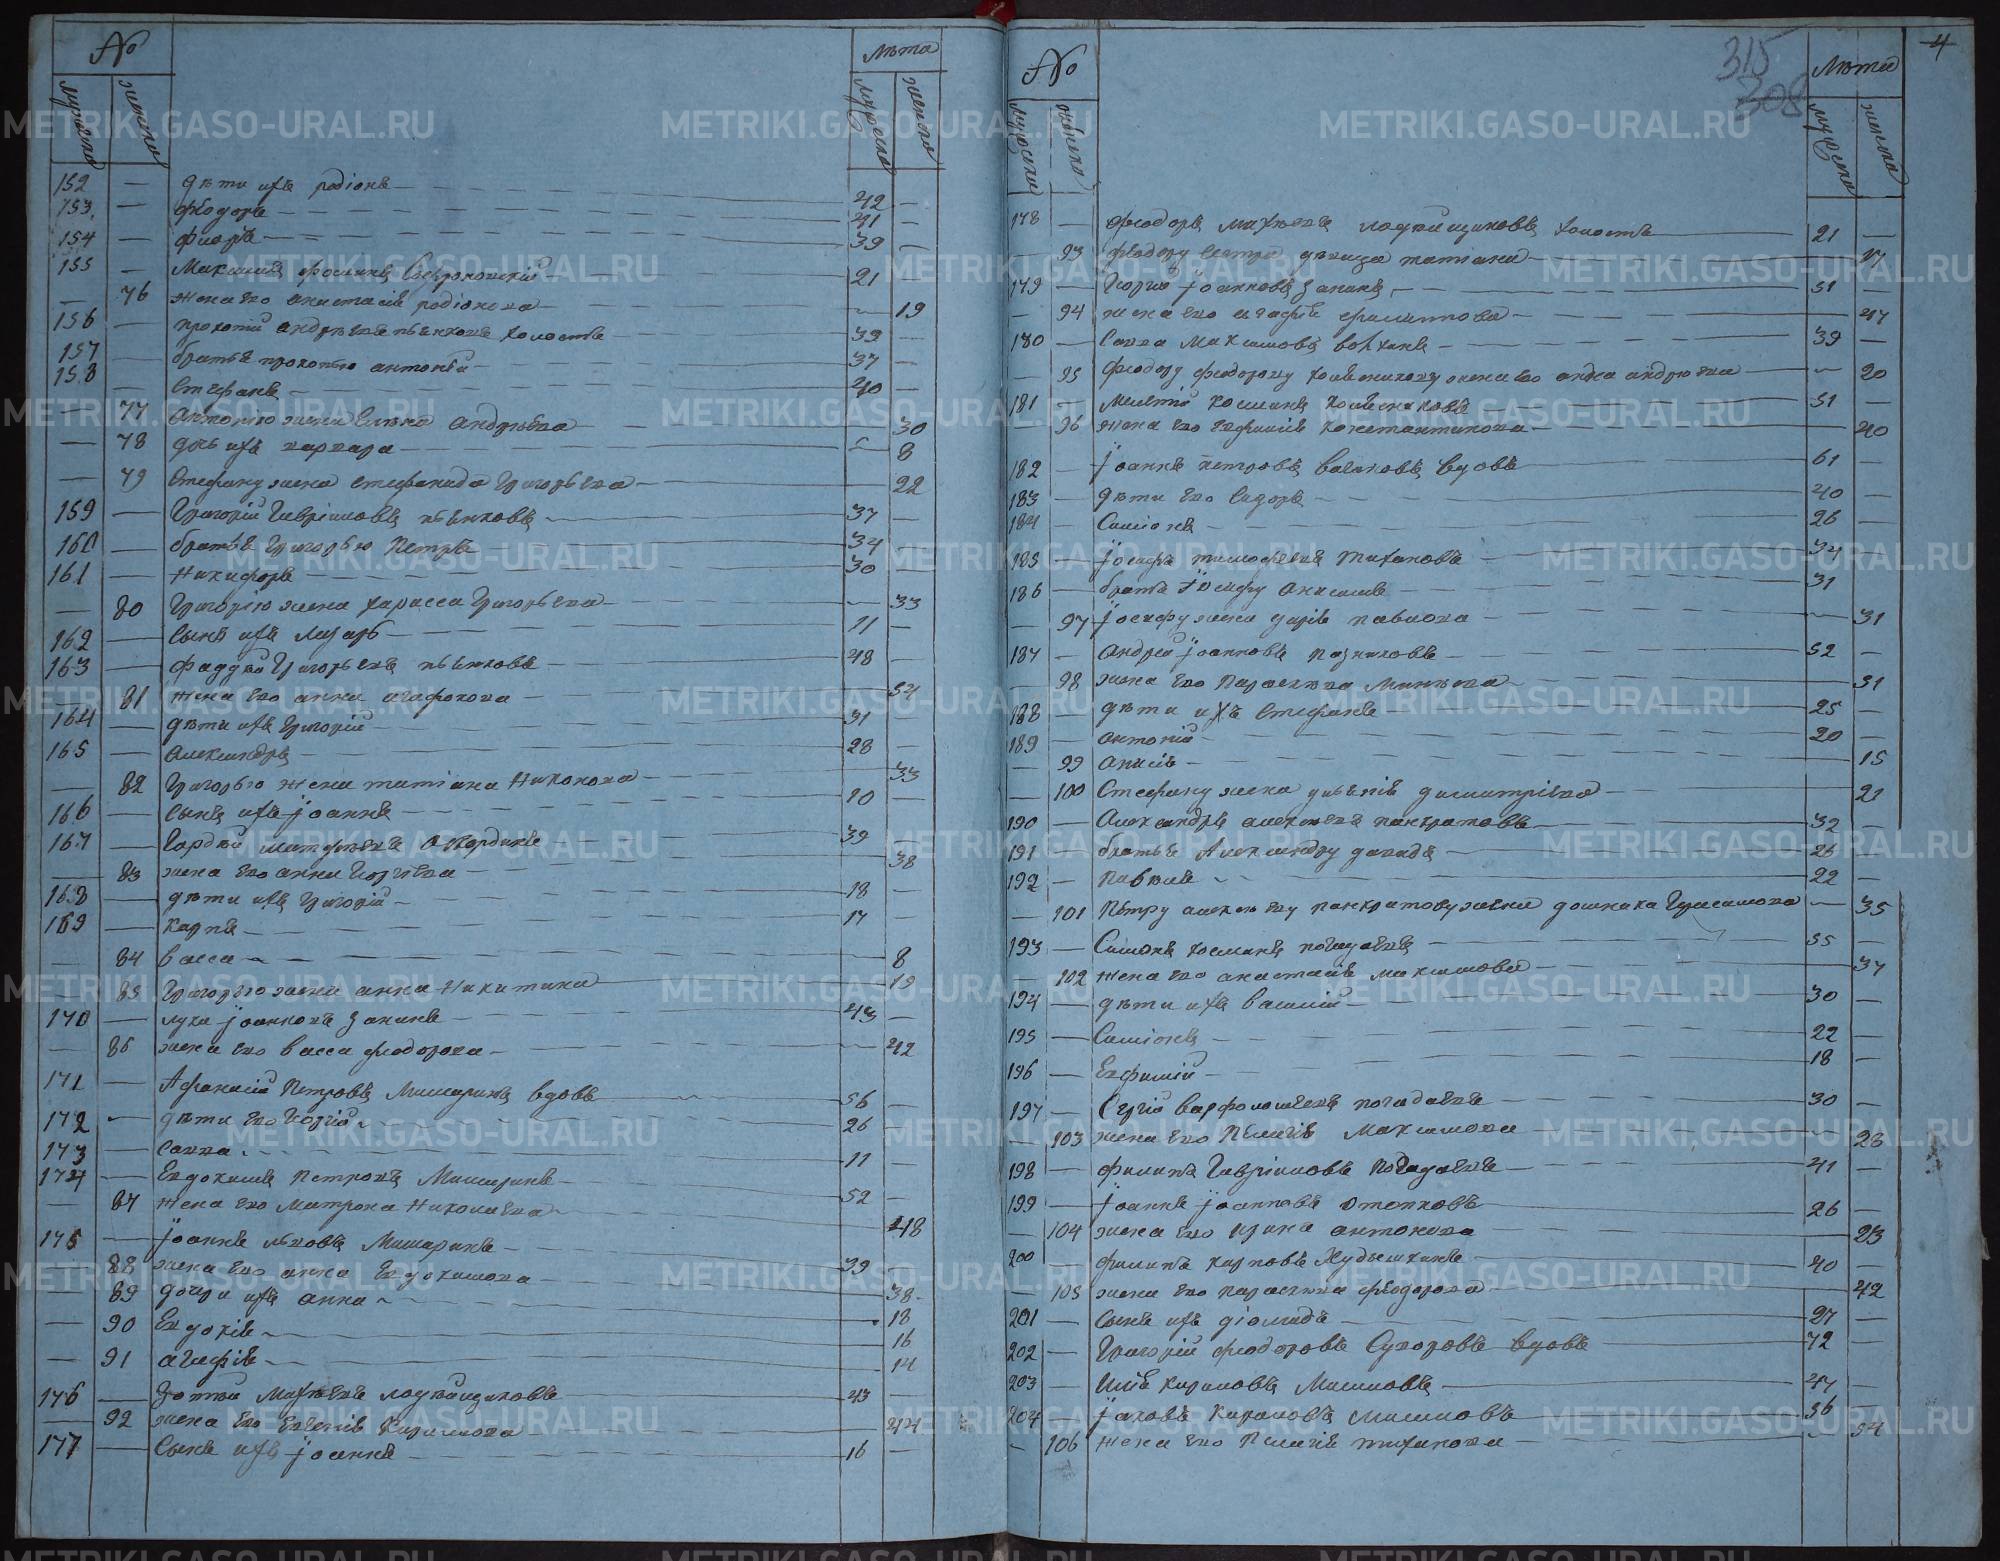 №
мужеска
женска
Лѣта
мужеска
женска
152 — дѣти ихъ родіонъ — 42 —
153 — феодоръ — 41 —
154 — 39 —
155 — Максимъ 21 —
— 76 жена его анастасія родіонова — 19
156 — прокопій андрѣевъ пьянковъ холостъ — 39 —
157 — братья прокопію антоній — 37 —
158 — Стефанъ — 40 —
— 77 Антонію жена Елена андрѣева — 30
— 78 дчь ихъ варвара — 8
— 79 Стефану жена стефанида Григорьева — 22
159 — Григорій Гавріиловъ пьянковъ — 37 —
160 — братья Григорью Петръ — 34
161 — Никифоръ — 30 —
— 80 Григорію жена Григорьева — 33
162 — Сынъ ихъ Лазарь — 11 —
163 — фаддей Григорьевъ пьянковъ — 48 —
— 81 жена его анна агафонова — 54
164 — дѣти ихъ Григорій — 31 —
165 — Александръ — 28 —
— 82 Григорью жена татіана Никонова — 33
166 — Сынъ ихъ іоаннъ — 10 —
167 — Гордей матфѣевъ 39 —
— 83 жена его анна Георгіева — 38
168 — дѣти ихъ Григорій — 18 —
169 — Карпъ — 17 —
— 84 васса — 8
— 85 Григорью жена анна Никитина — 19
170 — лука іоанновъ Занинъ — 43 —
— 86 жена его васса феодорова — 42
171 — Афанасій Петровъ Мишаринъ вдовъ — 56 —
172 — дѣти его Георгій — 26 —
173 — Савва — 11 —
174 — Евдокимъ Петровъ Мишаринъ — 52 —
— 87 жена его Матрона Николаева — 48
175 — іоаннъ львовъ Мишаринъ — 39 —
— 88 жена его анна Евдокимова — 38
— 89 дочери ихъ анна — 18
— 90 Евдокія — 16
— 91 агафія — 14
176 — Зотей Михѣевъ 43 —
— 92 жена его Евгенія Кирилова — 44
177 — Сынъ ихъ іоаннъ — 16 —
4
315
308
№
мужеска
женска
Лѣта
мужеска
женска
178 — феодоръ михѣевъ холостъ — 21 —
— 93 феодору Сестра дѣвица татіана — 17
179 — Георгій іоанновъ Занинъ — 51 —
— 94 жена его агафія филиппова — 47
180 — Савва Максимовъ 39 —
— 95 феодору феодорову жена его анна андрѣева — 20
181 — Козминъ 51 —
— 96 жена его Евфимія Константинова — 40
182 — іоаннъ петровъ вдовъ — 61 —
183 — дѣти его Сидоръ — 40 —
184 — Симіонъ — 26 —
185 — іосифъ тимофеевъ тихановъ — 34 —
186 — братъ іосифу Анисимъ — 31
— 97 іосифу жена дарія павлова — 31
187 — андрей іоанновъ Пазниковъ — 52 —
— 98 жена его Параскева Минѣева — 51
188 — дѣти ихъ стефанъ — 25 —
189 — антоній — 20 —
— 99 анисія — 15
— 100 Стефану жена димитріева — 21
190 — Александръ алексѣевъ панкратовъ — 32 —
191 — братья Александру давидъ — 26 —
192 — Павелъ — 22 —
— 101 Петру алексѣеву панкратову жена домника Герасимова — 35
193 — Симіонъ козминъ погадаевъ — 55 —
— 102 жена его анастасія максимова — 37
194 — дѣти ихъ василій — 30 —
195 — Симіонъ — 22 —
196 — Евфимій — 18 —
197 — Сергій варфоломѣевъ погадаевъ — 30 —
— 103 жена его Пелагія Максимова — 28
198 — филипъ Гавріиловъ Погадаевъ — 41 —
199 — іоаннъ іоанновъ 26 —
— 104 жена его ирина антонова — 23
200 — филипъ карповъ Кудышкинъ — 40 —
— 105 жена его параскева феодорова — 42
201 — Сынъ ихъ діомидъ — 27 —
202 — Григорій феодоровъ Суворовъ вдовъ — 72 —
203 — Илія Кириловъ Мишиновъ — 47 —
204 — іаковъ Кириловъ мишиновъ — 56 —
— 106 жена его Пелагія тиханова — 54